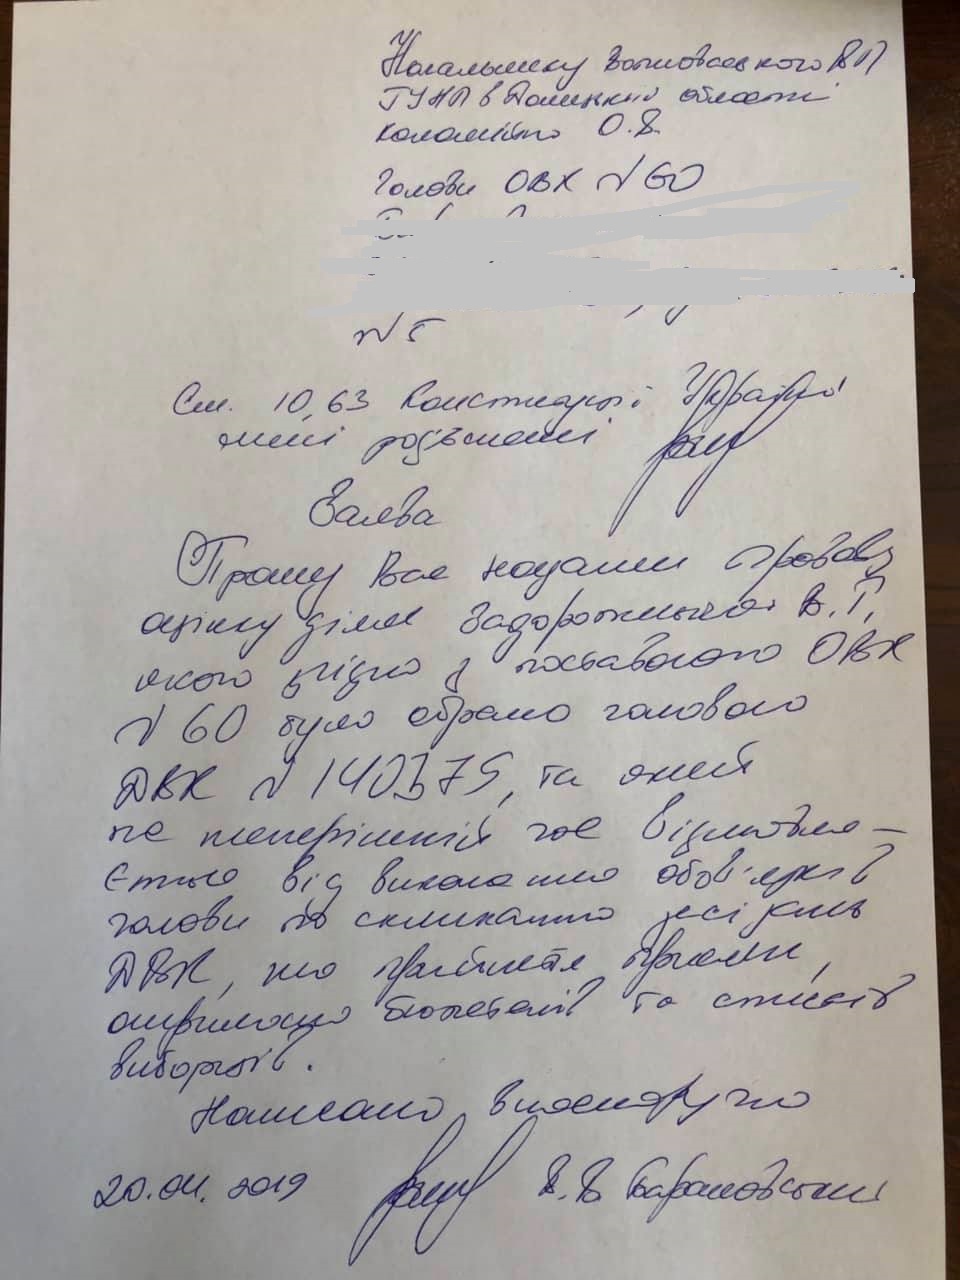 Начальнику Волноваського ВП
ГУНП в Донецькій області
Коломійцю О.В.
Голови ОВК №60
Ст. 10, 63 Конституції України
мені роз'яснені
Заява
Прошу Вас надати правову
оцінку діям Задорожнього В.Г.,
якого згідно з постановою ОВК
№60 було обрано головою
ДВК № 140375, та який
на теперішній час відмовля-
ється від виконання обов'язків
голови по скликанню засідань
ДВК, по прийняття прийом,
отриманню бюлетенів та списків
виборців.
Написано власноручно
20.04.2019 В.В Барановський